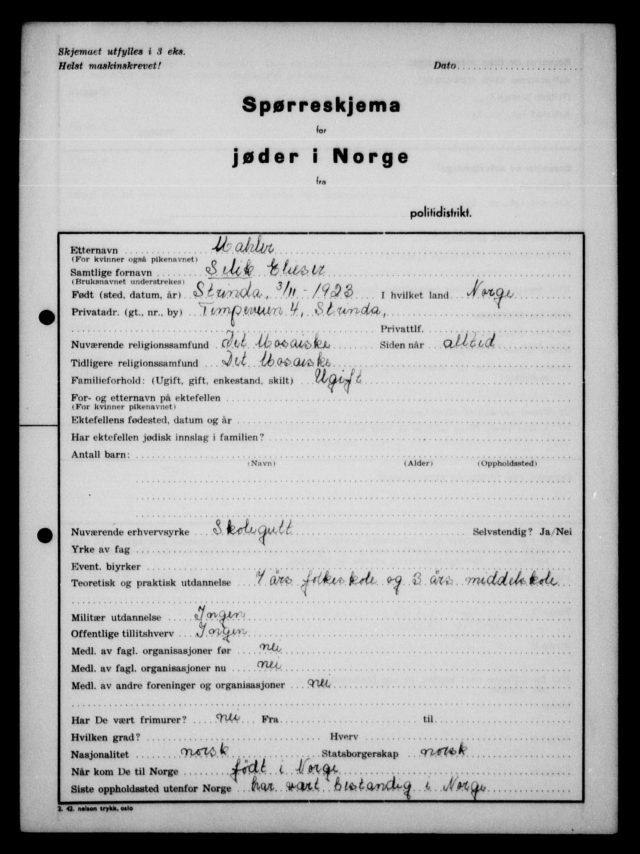 Skjemaet utfylles i 3 eks.
Helst maskinskrevet!
Dato
Spørreskjema
for
jøder i Norge
fra
politidistrikt.
Etternavn Mahler
(For kvinner også pikenavnet)
Samtlige fornavn Selik Elieser
(Bruksnavnet understrekes)
Født (sted, datum, år) Strinda, 3/11-1923 I hvilket land Norge
Privatadr. (gt., nr., by) Tempeveien 4, Strinda,
Privattlf.
Nuværende religionssamfund Det Mosaiske Siden når alltid
Tidligere religionssamfund Det Mosaiske
Familieforhold: (Ugift, gift, enkestand, skilt) Ugift
For- og etternavn på ektefellen
(For kvinner pikenavnet)
Ektefellens fødested, datum og år
Har ektefellen jødisk innslag i familien?
Antall barn:
(Navn) (Alder) (Oppholdssted)
Nuværende erhvervsyrke Skolegutt Selvstendig? Ja/Nei
Yrke av fag
Event. biyrker
Teoretisk og praktisk utdannelse 7 års folkeskole og 3 års middelskole
Militær utdannelse Ingen
Offentlige tillitshverv Ingen
Medl. av fagl. organisasjoner før nei
Medl. av fagl. organisasjoner nu nei
Medl. av andre foreninger og organisasjoner nei
Har De vært frimurer? nei Fra til
Hvilken grad? Hverv
Nasjonalitet norsk Statsborgerskap norsk
Når kom De til Norge født i Norge
Siste oppholdssted utenfor Norge har vært bestandig i Norge
2. 42. nelson trykk, oslo